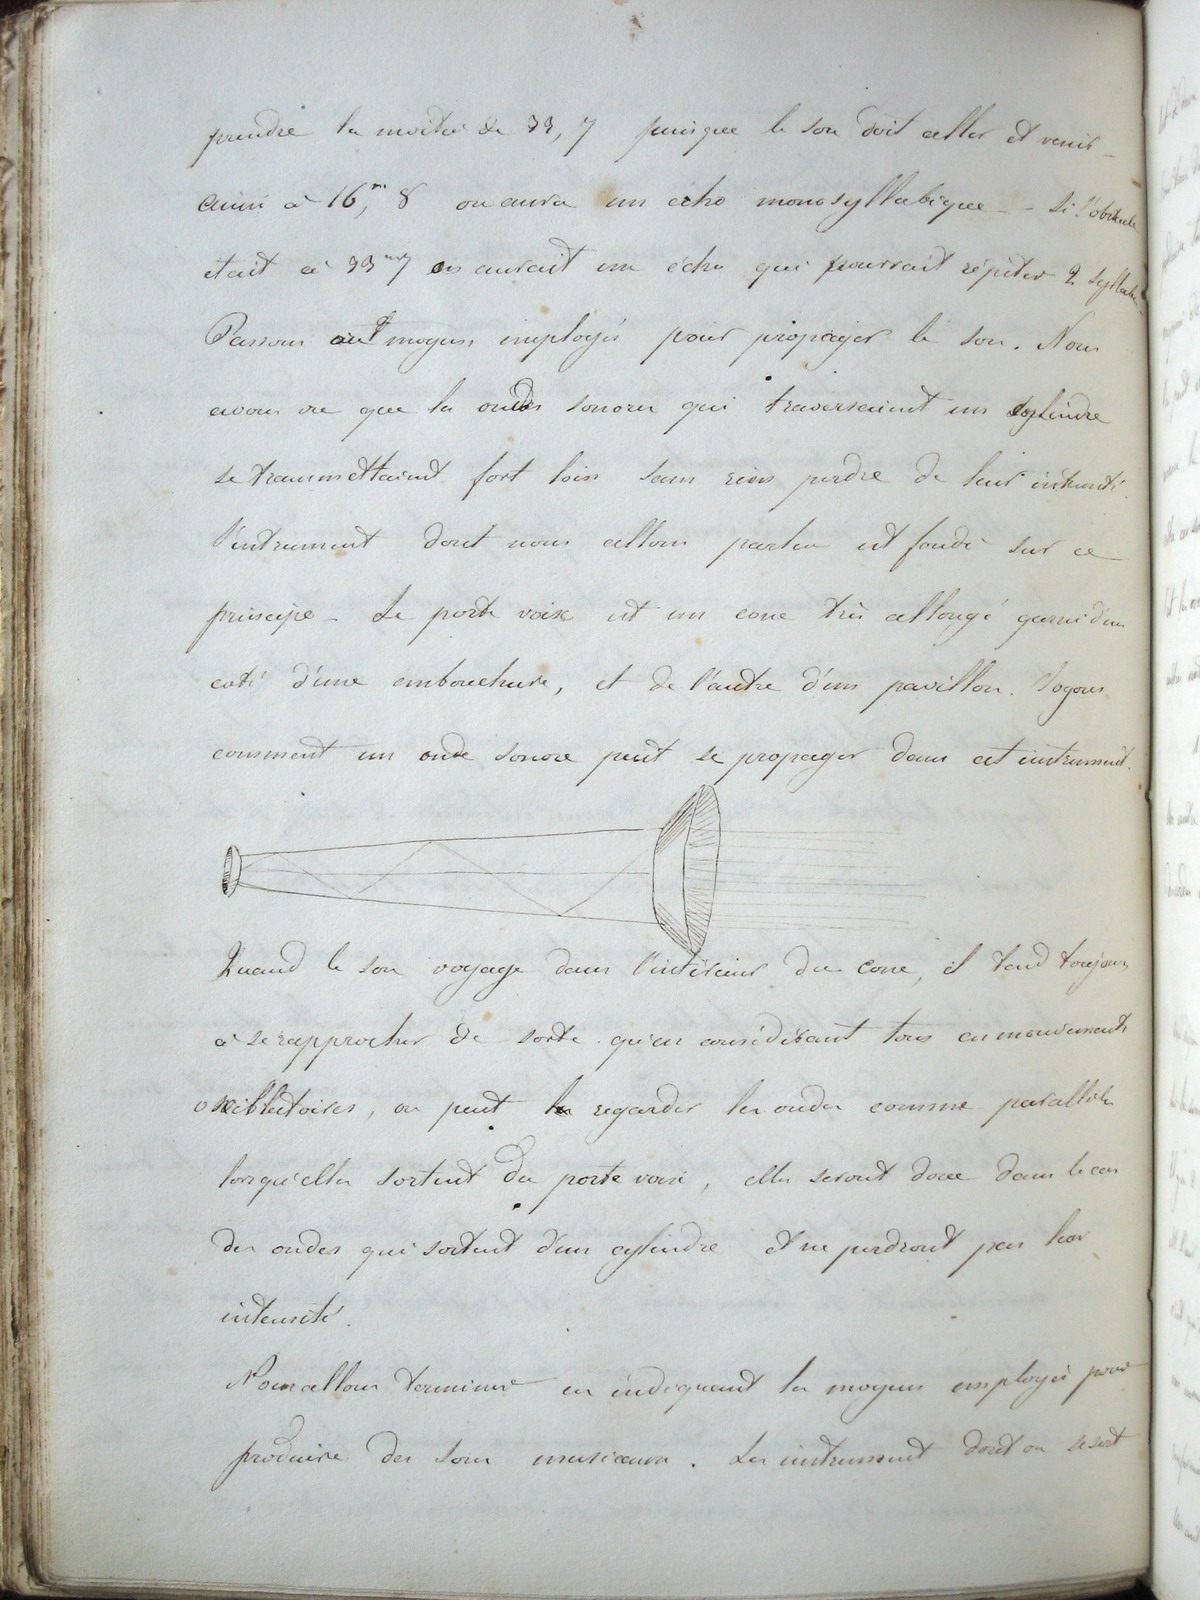 prendre la moitié de 33,7 puisque le son doit aller et venir –
ainsi à 16,m 8 on aura un écho monosyllabique – – Si l'obstacle
était à 33m,7 on aurait un écho qui pourrait répéter 2 syllabes
Passons aux moyens employés pour propager le son. Nous
avons vu que les ondes sonores qui traversaient un cylindre
se transmettaient fort loin sans rien perdre de leur intensité.
l'instrument dont nous allons parler est fondé sur ce
principe – Le porte voix est un cone très allongé garni d'un
coté d'une embouchure, et de l'autre d'un pavillon. Voyons
comment un onde sonore peut se propager dans cet instrument.
Quand le son voyage dans l'intérieur du cone, il tend toujours
à se rapprocher de sorte qu'en considérant tous ces mouvements
oscillatoires, on peut regarder les ondes comme parallèles
lorsqu'elles sortent du porte voix, elles seront donc dans le cas
des ondes qui sortent d'un cylindre et ne perdront pas leur
intensité.
Nous allons terminer en indiquant les moyens employés pour
produire des sons musicaux. Les instrument dont on se sert